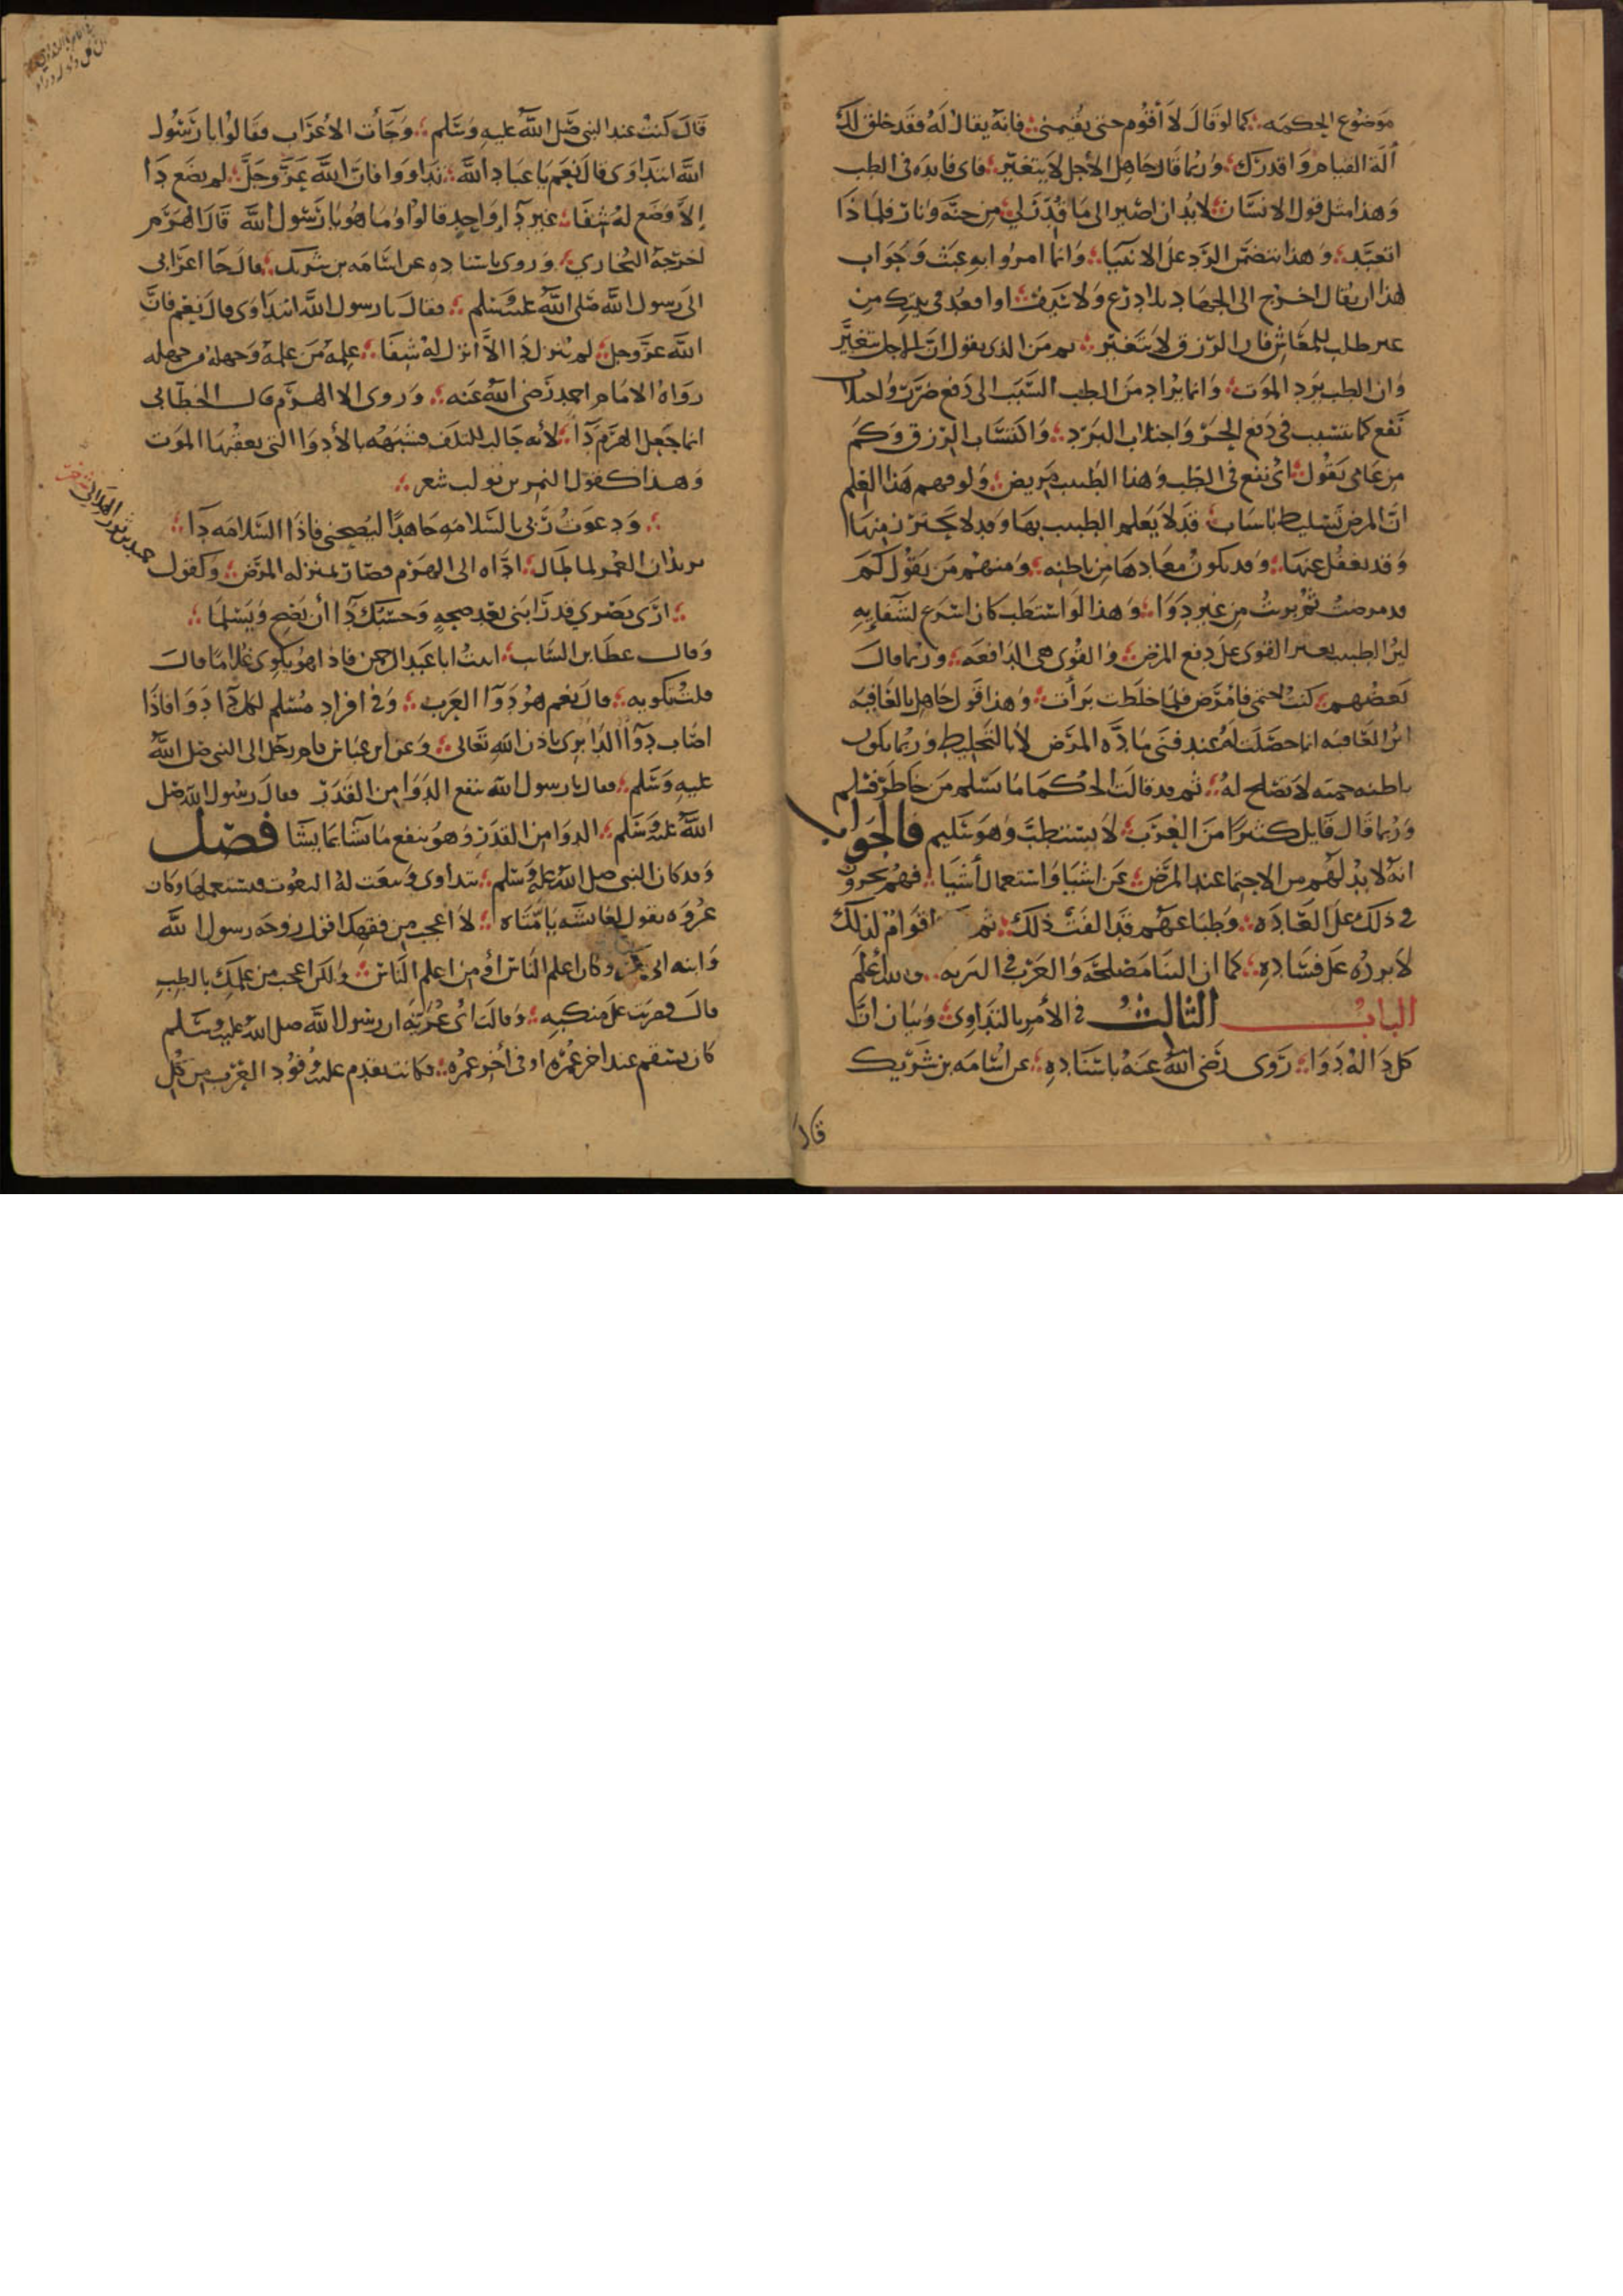 موضوع الحكمه كما لو قال لا أقوم حتى يقيمنى فانه يقال له فقد خلق لك
آلة القيام واقدرك وربما قال جاهل الأجل لا يتغير فاى فايده فى الطب
وهذا مثل قول الانسان لا بد ان اصير الى ما قدر لي من جنة ونار فلماذا
اتعبد وهذا يتضمن الرد على الانبيا وانما امروا به عبث وجواب
هذا ان يقال اخرج الى الجهاد بلا درع ولا او اقعد فى بيتك من
غير طلب للمعاش فان الرزق لا يتغير ثم من الذى يقول ان الاجل يتغير
وان الطب يرد الموت وانما يراد من الطب السبب الى دفع ضرر واجتلاب
نفع كما تتسبب فى دفع الحر واجتلاب البرد واكتساب الرزق وكم
من عامى يقول اى نفع فى الطب وهذا الطبيب مريض ولو فهم هذا العلم
ان المرض تسليط باسباب قد لا يعلم الطبيب بها وقد لا يحترز منها
وقد يغفل عنها وقد يكون من باطنه ومنهم من يقول كم
قد مرضت ثم بريت من غير دوا وهذا لو استطب كان اسرع لشفايه
لان الطبيب يعين القوى على دفع المرض والقوى هى الدافعه وربما قال
بعضهم كنت احتمى فامرض فلما خلطت برأت وهذا قول جاهل بالعاقبه
لان العافيه انما حصلت له عند فنى مادة المرض لا بالتخليط وربما يكون
باطنه حميه لا تصلح له ثم قد قالت الحكما ما يسلم من خاطر فسلم
وربما قال قايل كثيرا من العرب لا يستطب وهو سليم فالجواب
انه لا بد لهم من الاحتما عند المرض عن اشيا واستعمال أشيا فهم يجرون
فى ذلك على العاده وطباعهم قد الفت ذلك ثم اقوام لذلك
لا يرده على فساده كما ان البنا مصلحة والعرب فى البريه والله اعلم
الباب الثالث فى الأمر بالتداوى وبيان ان
كل دا له دوا روى رضى الله عنه باسناده عن اسامه بن شريك
قال
قال كنت عند النبى صلى الله عليه وسلم وجأت الاعراب فقالوا يا رسول
الله انتداوى قال نعم يا عباد الله تداووا فان الله عز وجل لم يضع دا
إلا وضع له شفا غير دا واحد قالوا وما هو يا رسول الله قال الهرم
اخرجه البخاري وروى باسناده عن اسامه بن شريك قال جا اعرابى
الى رسول الله صلى الله عليه وسلم فقال يا رسول الله انتداوى قال نعم فان
الله عز وجل لم ينزل دا الا انزل له شفا علمه من علمه وجهله من جهله
رواه الامام احمد رضى الله عنه وروى الا الهرم قال الخطابى
انما جعل الهرم دا لأنه جالب للتلف فشبهه بالأدوا التى يعقبها الموت
وهذا كقول النمر بن تولب شعر
ودعوت ربى بالسلامه جاهدا ليصحنى فاذا السلامه دا
يريد ان العمر لما طال اداه الى الهرم فصار بمنزله المرض وكقول حميد بن ثور الهلالى
ارى بصري قد رابنى بعد صحه وحسبك دا أن تصح وتسلما
وقال عطا بن الساب اتيت ابا عبد الرحمن فاذا هو يكوى غلاما قال
قلت تكويه قال نعم هو دوا العرب وفى افراد مسلم لكل دا دوا فاذا
اصاب دوا الدا برى باذن الله تعالى وعن ابن عباس قام رجل الى النبى صلى الله
عليه وسلم فقال يا رسول الله ينفع الدوا من القدر فقال رسول الله صلى
الله عليه وسلم الدوا من القدر وهو ينفع ما شآ عا يشا فصل
وقد كان النبى صلى الله عليه وسلم يتداوى وينعت له النعوت فيستعملها وكان
عروه يقول لعايشه يا امتاه لا اعجب من فقهك اقول زوجه رسول الله
وابنه ابى بكر وكان اعلم الناس أو من اعلم الناس ولكن اعجب من علمك بالطب
قال فضربت على منكبه وقالت اى عريه ان رسول الله صلى الله عليه وسلم
كان يسقم عند اخر عمره او فى أخر عمره فكانت تقدم عليه وفود العرب من كل